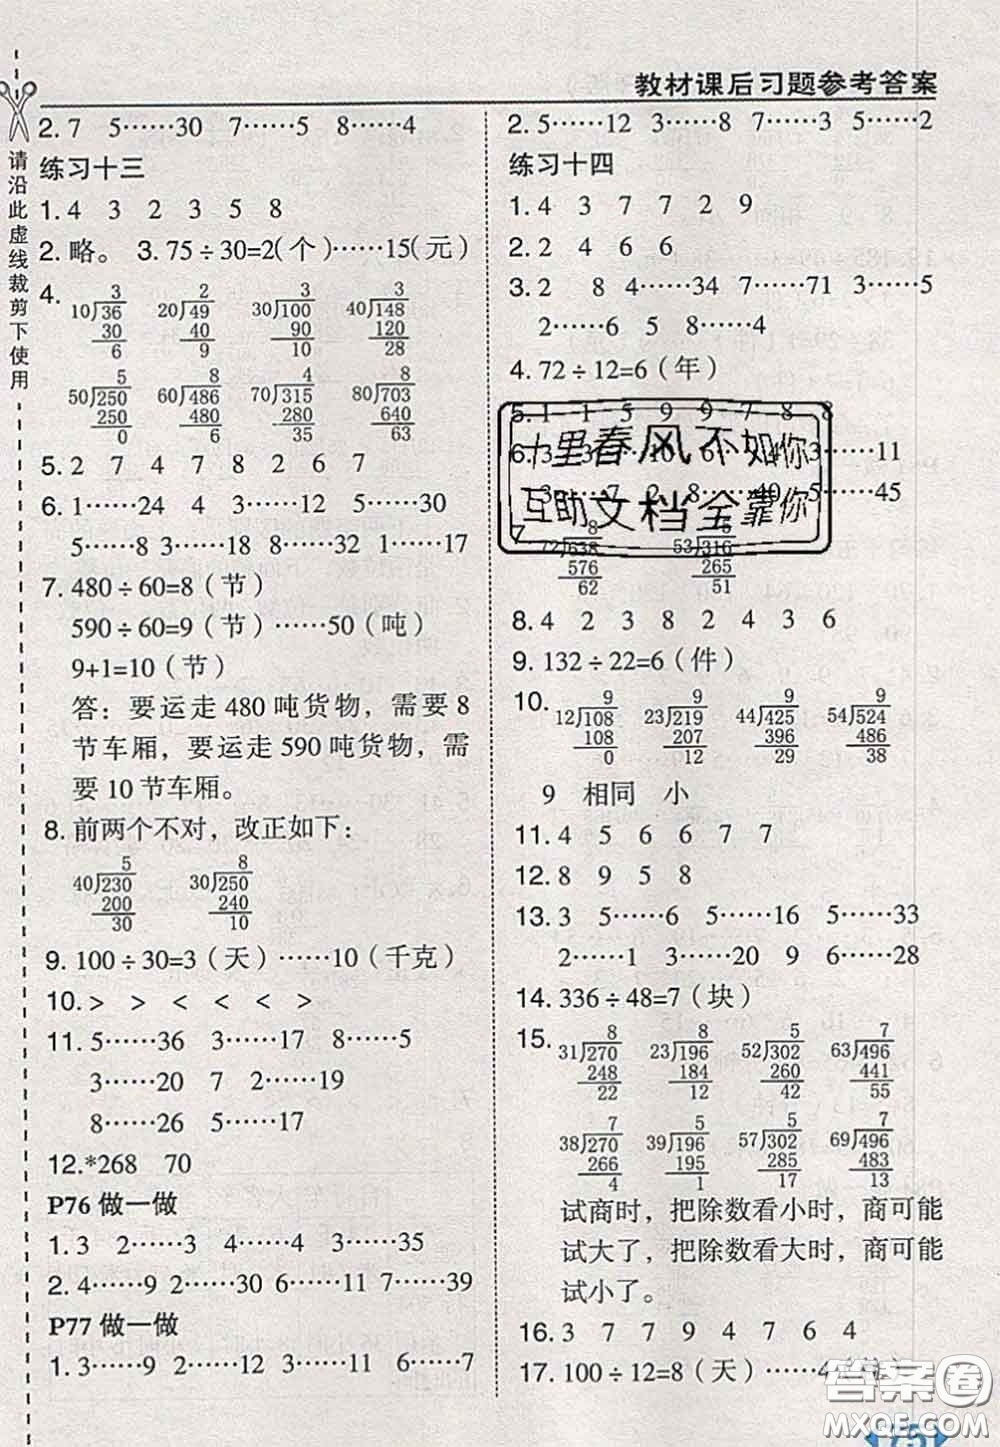 教材课后习题参考答案
请沿此虚线裁剪下使用
2. 7 5……30 7……5 8……4
练习十三
1. 4 3 2 3 5 8
2. 略。 3. 75÷30=2(个)……15(元)
4.
3 2 3 3
10)36 20)49 30)100 40)148
30 40 90 120
6 9 10 28
5 8 4 8
50)250 60)486 70)315 80)703
250 480 280 640
0 6 35 63
5. 2 7 4 7 8 2 6 7
6. 1……24 4 3……12 5……30
5……8 3……18 8……32 1……17
7. 480÷60=8(节)
590÷60=9(节)……50(吨)
9+1=10(节)
答:要运走 480 吨货物,需要 8
节车厢,要运走 590 吨货物,需
要 10 节车厢。
8. 前两个不对,改正如下:
5 8
40)230 30)250
200 240
30 10
9. 100÷30=3(天)……10(千克)
10. > > < < < >
11. 5……36 3……17 8……5
3……20 7 2……19
8……26 5……12
12. *268 70
P76 做一做
1. 3 2……3 4……4 3……35
2. 4……9 2……30 6……11 7……39
P77 做一做
1. 3……9 2……12 3……11 6……7
2. 5……12 3……8 7……3 5……2
练习十四
1. 4 3 7 7 2 9
2. 2 4 6 6
3. 2 8 4……34 7……71 3……5
2……6 5 8……4
4. 72÷12=6(年)
5. 1 1 5 9 9 7 8 8
十里春风不如你
互助文档全靠你
6. 3 3……11
3……7 2 8……40 5……45
7.
8 5
72)638 53)316
576 265
62 51
8. 4 2 3 8 2 4 3 6
9. 132÷22=6(件)
10.
9 9 9 9
12)108 23)219 44)425 54)524
108 207 396 486
0 12 29 38
9 相同 小
11. 4 5 6 6 7 7
12. 8 9 5 8
13. 3 5……6 5……16 5……33
2……1 3……20 9 6……28
14. 336÷48=7(块)
15.
8 8 5 7
31)270 23)196 52)302 63)496
248 184 260 441
22 12 42 55
7 5 5 7
38)270 39)196 57)302 69)496
266 195 285 483
4 1 17 13
试商时,把除数看小时,商可能
试大了,把除数看大时,商可能
试小了。
16. 3 7 7 9 4 7 6 4
17. 100÷12=8(天)……4
答案圈
MXQE.COM
75